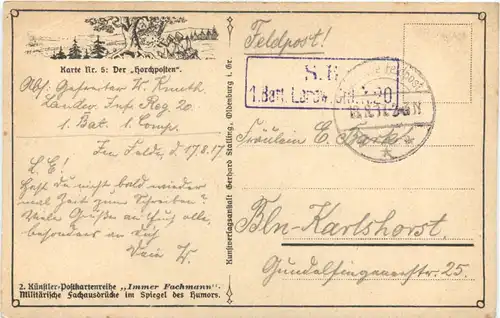 Karte Nr. 5: Der „Horchposten".
Abs: Gefreiter W. Knuth
Landw. Inf. Reg 20.
1. Bat. 1. Comp.
Im Felde, d. 17.8.17
L. E.!
Hast du nicht bald wieder
mal Zeit zum Schreiben?
Viele Grüße an Euch alle,
besonders an Dich
Dein W.
2. Künstler-Postkartenreihe „Immer Fachmann"
Militärische Fachausdrücke im Spiegel des Humors.
Kunstverlagsanstalt Gerhard Stalling, Oldenburg i. Gr.
Feldpost!
S. B.
1. Batl. Landw.
20
Fräulein E.
Bln-Karlshorst.
Gundelfingenerstr. 25.